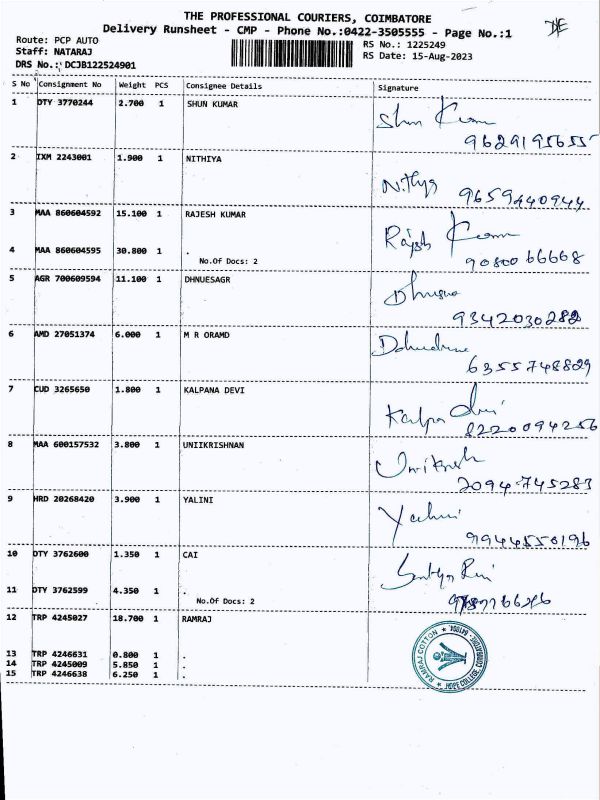 THE PROFESSIONAL COURIERS, COIMBATORE
Delivery Runsheet - CMP - Phone No.:0422-3505555 - Page No.:1
Route: PCP AUTO RS No.: 1225249
Staff: NATARAJ RS Date: 15-Aug-2023
DRS No.: DCJB122524901
S No Consignment No Weight PCS Consignee Details Signature
1 DTY 3770244 2.700 1 SHUN KUMAR Shun Kumar
9629195655
2 IXM 2243001 1.900 1 NITHIYA Nithya 9659440944
3 MAA 860604592 15.100 1 RAJESH KUMAR Rajesh Kumar
4 MAA 860604595 30.800 1 .
No.Of Docs: 2 9080066668
5 AGR 700609594 11.100 1 DHNUESAGR
9342030282
6 AMD 27051374 6.000 1 M R ORAMD
6355748829
7 CUD 3265650 1.800 1 KALPANA DEVI Kalpa Devi
8220094256
8 MAA 600157532 3.800 1 UNIIKRISHNAN
20947745283
9 HRD 20268420 3.900 1 YALINI Yalini
9944550196
10 DTY 3762600 1.350 1 CAI
11 DTY 3762599 4.350 1 .
No.Of Docs: 2
12 TRP 4245027 18.700 1 RAMRAJ
13 TRP 4246631 0.800 1 .
14 TRP 4245009 5.850 1 .
15 TRP 4246638 6.250 1 .
RAMRAJ COTTON
HOPE COLLEGE, COIMBATORE